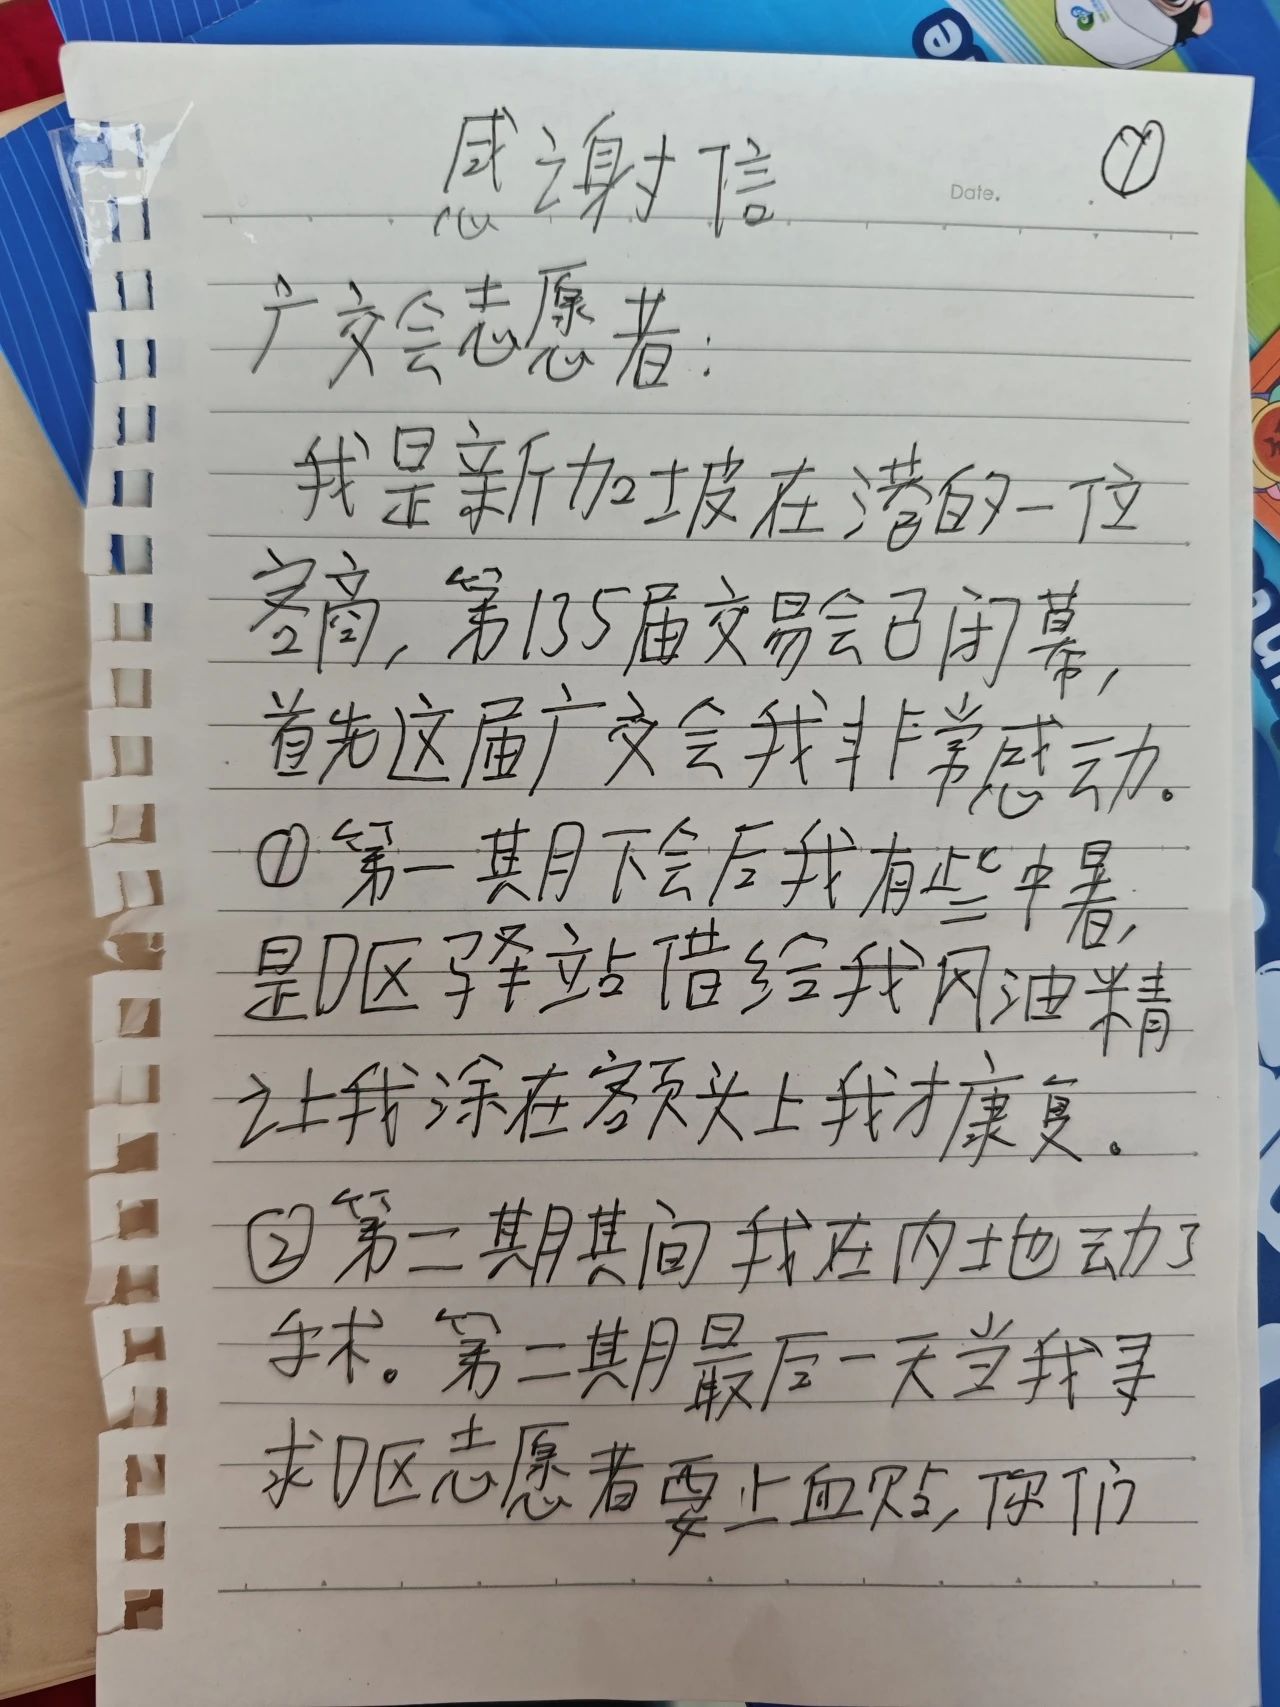 感谢信
①
Date.
广交会志愿者：
我是新加坡在港的一位
客商，第135届交易会已闭幕，
首先这届广交会我非常感动。
①第一期下会后我有些中暑，
是D区驿站借给我风油精
让我涂在额头上我才康复。
②第二期其间我在内地动了
手术。第二期最后一天当我寻
求D区志愿者要止血贴，你们